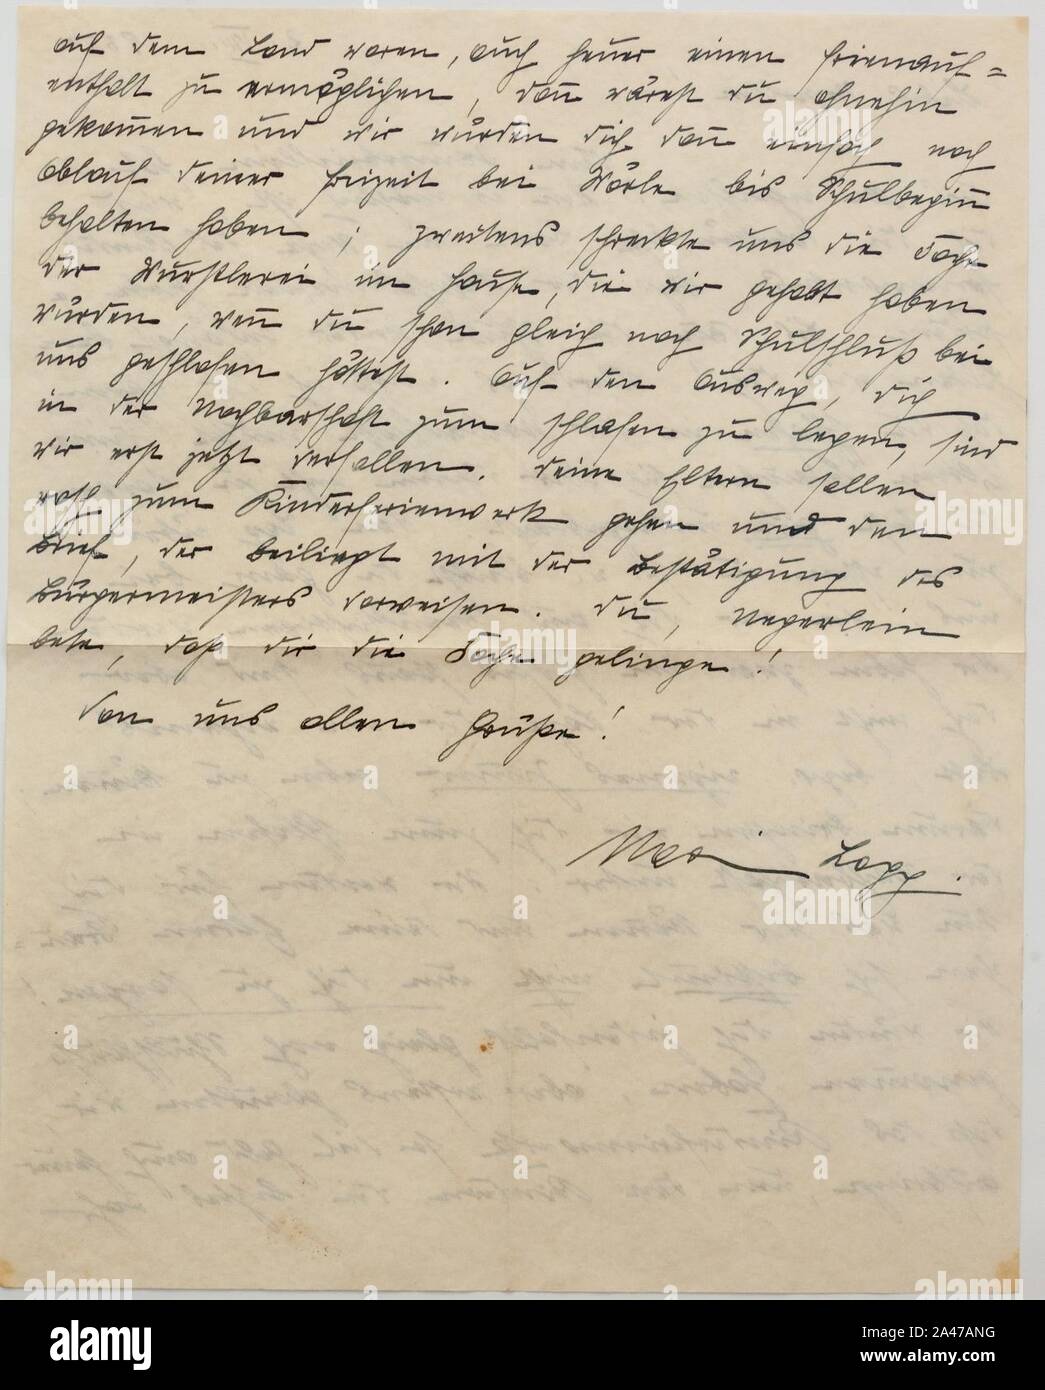 auf dem Land waren, auch heuer einen Ferienauf=
enthalt zu ermöglichen, dann wärest du ohnehin
gekommen und wir würden dich dann einfach noch
Ablauf deiner Freizeit bei Wörle bis Schulbeginn
behalten haben; zweitens schreckte uns die Sache
der Wurstlerei im Hause, die wir gehabt haben
würden, wenn du schon gleich nach Schulschluß bei
uns geschlafen hättest. Auf den Ausweg, dich
in der Nachbarschaft zum schlafen zu legen, sind
wir erst jetzt verfallen. Deine Eltern sollen
rasch zum Kinderferienwerk gehen und den
Brief, der beiliegt mit der Bestätigung des
Bürgermeisters vorweisen. Du, Negerlein
bete, daß dir die Sache gelinge!
Von uns allen Grüße!
alamy
Image ID: 2A47ANG
www.alamy.com